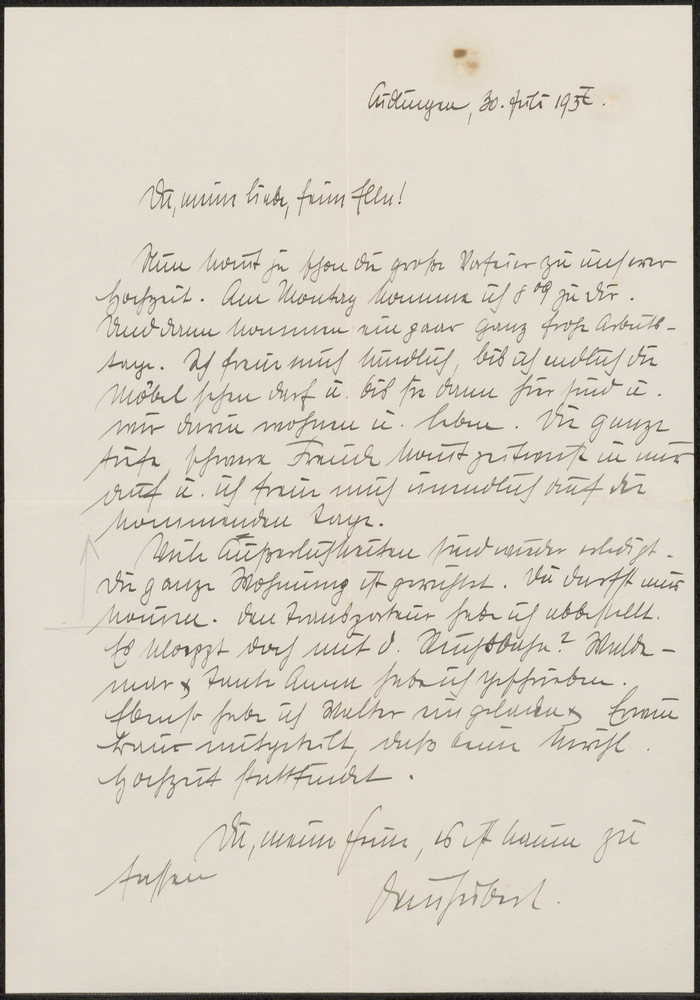 30. Juli 193
Du, meine liebe, feine Ellen!
Nun kommt ja schon die große Vorfeier zu unserer
Hochzeit. Am Montag komme ich 8 09 zu Dir.
Und dann kommen ein paar ganz frohe Arbeits-
tage. Ich freue mich kindlich, bis ich endlich die
Möbel sehen darf u. bis sie dann hier sind u.
wir darin wohnen u. leben. Die ganze
tiefe, schwere Freude kommt in mir
auf u. ich freue mich unendlich auf die
kommenden Tage.
Viele Äußerlichkeiten sind wieder erledigt.
Die ganze Wohnung ist gerichtet. Du darfst nur
kommen. Den Transporteur habe ich abbestellt.
Es klappt doch mit d. Reichsbahn? Walde-
mar & Tante Anna habe ich geschrieben.
Ebenso habe ich Walter eingeladen &
mitgeteilt, daß keine kirchl.
Hochzeit stattfindet.
Du, meine feine, es ist kaum zu
fassen
Dein Hubert.